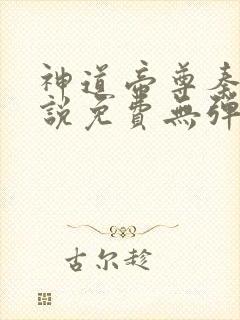 神道帝尊秦
說免費無彈
古尔趁